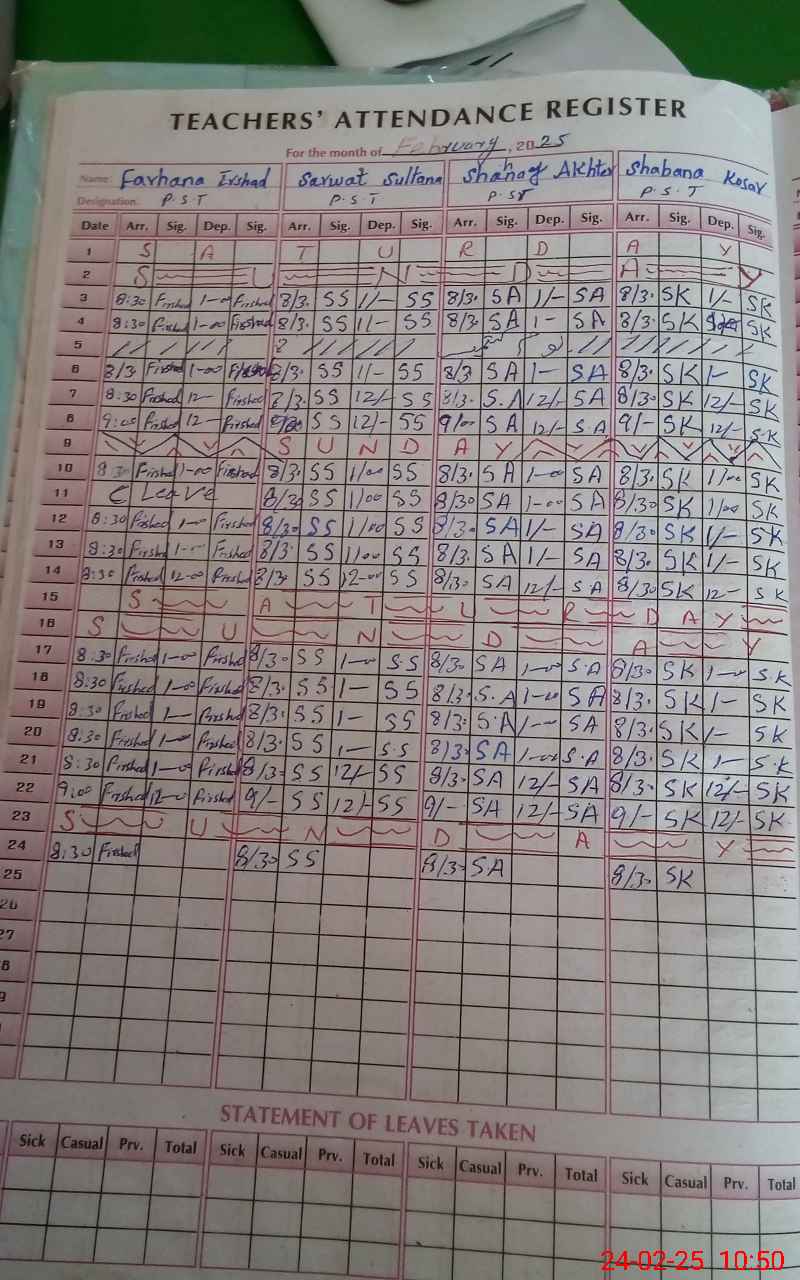 TEACHERS' ATTENDANCE REGISTER
For the month of February, 2025
Name: Farhana Irshad Sarwat Sultana Shahnaz Akhter Shabana Kosar
Designation: P.S.T P.S.T P.ST P.S.T
Date Arr. Sig. Dep. Sig. Arr. Sig. Dep. Sig. Arr. Sig. Dep. Sig. Arr. Sig. Dep. Sig.
1 S A T U R D A Y
2 S U N D A Y
3 8:30 1-00 8/3. SS 1/- SS 8/3. SA 1/- SA 8/3. SK 1/- SK
4 8:30 1-00 8/3. SS 1/- SS 8/3. SA 1- SA 8/3. SK SK
5
6 8/3 1-00 8/3. SS 1/- SS 8/3 SA 1- SA 8/3. SK 1- SK
7 8:30 12- 8/3. SS 12/- SS 8/3. S.A 12/- SA 8/30 SK 12/- SK
8 9:00 12- SS 12/- SS 9/00 SA 12/- S.A 9/- SK 12/- S.K
9 S U N D A Y
10 8:30 1-00 8/3. SS 1/00 SS 8/3. SA 1-00 SA 8/3. SK 1/00 SK
11 C Leave 8/30 SS 1/00 SS 8/30 SA 1-00 SA 8/30 SK 1/00 SK
12 8:30 1-00 8/30 SS 1/00 SS 8/3. SA 1/- SA 8/30 SK 1/- SK
13 8:30 1-00 8/3. SS 1/00 SS 8/3. SA 1/- SA 8/3. SK 1/- SK
14 8:30 12-00 8/3. SS 12-00 SS 8/30. SA 12/- S.A 8/30 SK 12- SK
15 S A T U R D A Y
16 S U N D A Y
17 8:30 1-00 8/30 SS 1-00 S.S 8/30 SA 1-00 S.A 8/30 SK 1-00 S.K
18 8:30 1-00 8/3. SS 1- SS 8/3. S.A 1-00 SA 8/3. SK 1- SK
19 8:30 1- 8/3. SS 1- SS 8/3. S.A 1-00 SA 8/3. SK 1- SK
20 8:30 1-00 8/3. SS 1- S.S 8/3. SA 1-00 S.A 8/3. SK 1- S.K
21 8:30 1-00 8/3. SS 12/- SS 8/3. SA 12/- SA 8/3. SK 12/- SK
22 9:00 12-0 9/- SS 12/- SS 9/- SA 12/- SA 9/- SK 12/- SK
23 S U N D A Y
24 8:30 8/30 SS 8/30 SA 8/3. SK
25
26
27
8
9
STATEMENT OF LEAVES TAKEN
Sick Casual Prv. Total Sick Casual Prv. Total Sick Casual Prv. Total Sick Casual Prv. Total
24-02-25 10:50